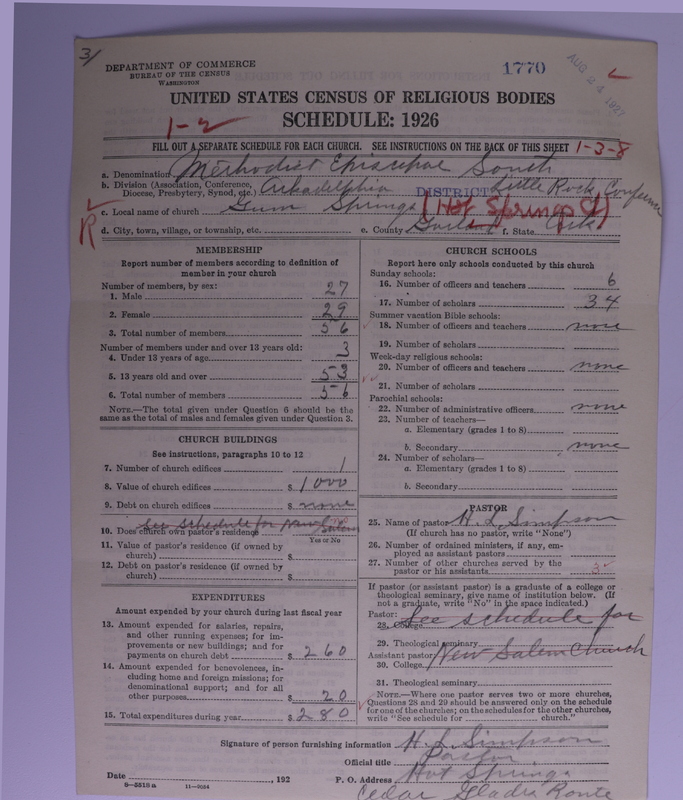 3/
DEPARTMENT OF COMMERCE
BUREAU OF THE CENSUS
WASHINGTON
1770
AUG 24 1927
UNITED STATES CENSUS OF RELIGIOUS BODIES
SCHEDULE: 1926
1-2
FILL OUT A SEPARATE SCHEDULE FOR EACH CHURCH. SEE INSTRUCTIONS ON THE BACK OF THIS SHEET 1-3-8
a. Denomination Methodist Episcopal South
b. Division (Association, Conference, Diocese, Presbytery, Synod, etc.) Arkadelphia DISTRICT Little Rock Conference
c. Local name of church Gum Springs (Hot Springs Ct)
R
d. City, town, village, or township, etc. e. County Garland f. State Ark
MEMBERSHIP
Report number of members according to definition of
member in your church
Number of members, by sex:
1. Male 27
2. Female 29
3. Total number of members 56
Number of members under and over 13 years old:
4. Under 13 years of age 3
5. 13 years old and over 53
6. Total number of members 56
NOTE.—The total given under Question 6 should be the
same as the total of males and females given under Question 3.
CHURCH BUILDINGS
See instructions, paragraphs 10 to 12
7. Number of church edifices 1
8. Value of church edifices $ 1000
9. Debt on church edifices $ none
See schedule for New Salem
10. Does church own pastor's residence
Yes or No
11. Value of pastor's residence (if owned by
church) $
12. Debt on pastor's residence (if owned by
church) $
EXPENDITURES
Amount expended by your church during last fiscal year
13. Amount expended for salaries, repairs,
and other running expenses; for im-
provements or new buildings; and for
payments on church debt $ 260
14. Amount expended for benevolences, in-
cluding home and foreign missions; for
denominational support; and for all
other purposes $ 20
15. Total expenditures during year $ 280
CHURCH SCHOOLS
Report here only schools conducted by this church
Sunday schools:
16. Number of officers and teachers 6
17. Number of scholars 34
Summer vacation Bible schools:
18. Number of officers and teachers none
19. Number of scholars
Week-day religious schools:
20. Number of officers and teachers none
21. Number of scholars
Parochial schools:
22. Number of administrative officers none
23. Number of teachers—
a. Elementary (grades 1 to 8)
b. Secondary none
24. Number of scholars—
a. Elementary (grades 1 to 8)
b. Secondary
PASTOR
25. Name of pastor H. L. Simpson
(If church has no pastor, write "None")
26. Number of ordained ministers, if any, em-
ployed as assistant pastors
27. Number of other churches served by the
pastor or his assistants 3
If pastor (or assistant pastor) is a graduate of a college or
theological seminary, give name of institution below. (If
not a graduate, write "No" in the space indicated.)
Pastor: See schedule for
28. College
29. Theological seminary
Assistant pastor: New Salem Church
30. College
31. Theological seminary
NOTE.—Where one pastor serves two or more churches,
Questions 28 and 29 should be answered only on the schedule
for one of the churches; on the schedules for the other churches,
write "See schedule for ........ church."
Signature of person furnishing information H. L. Simpson
Official title Pastor
Date , 192 P. O. Address Hot Springs
8-5518a 11-9034 Cedar Glades Route